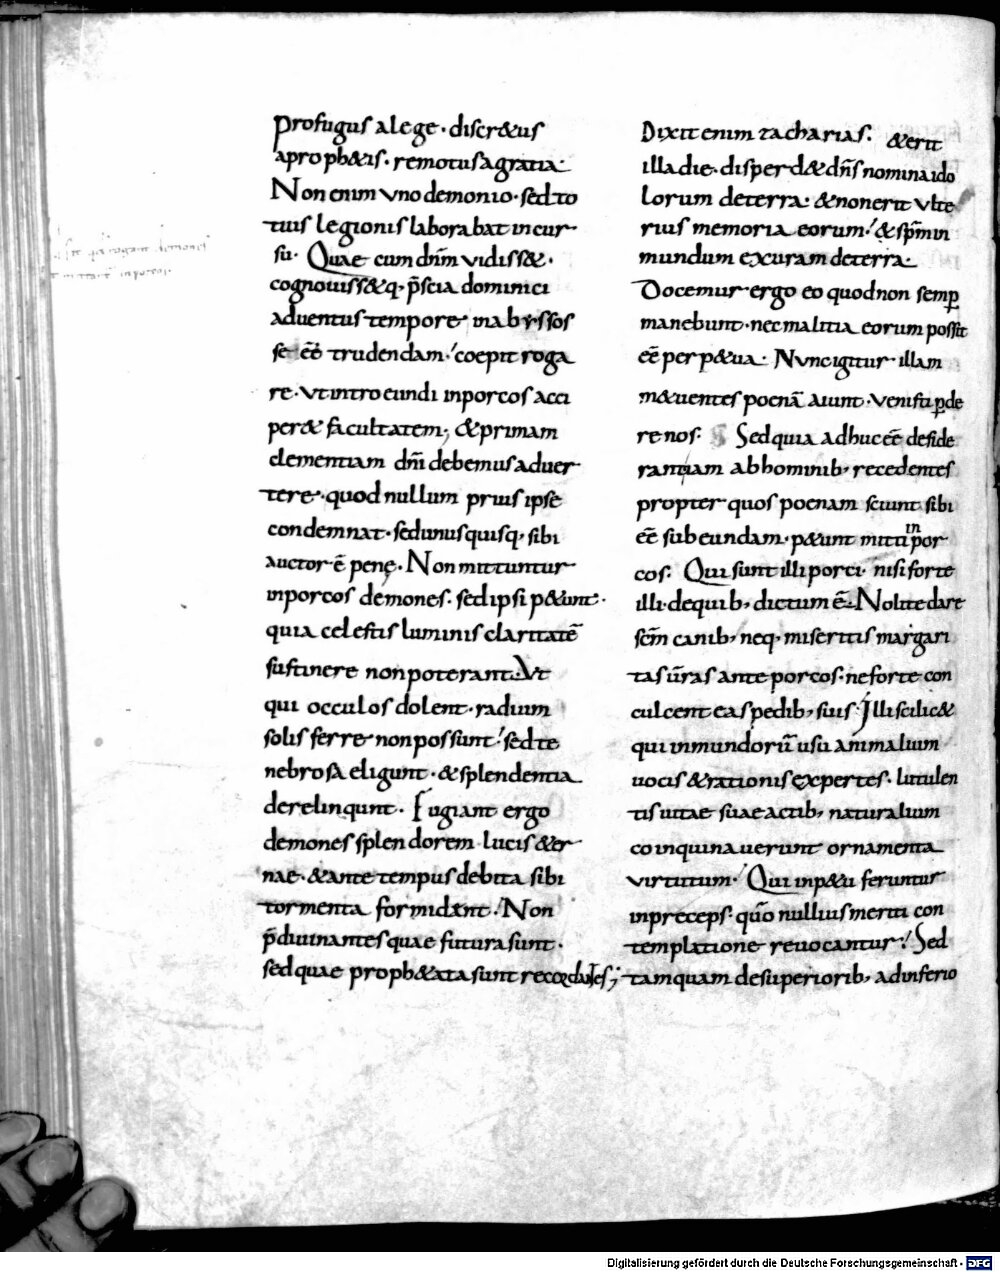 profugus a lege · discretus
a prophetis · remotus a gratia ·
Non enim uno demonio · sed to
tius legionis laborabat incur
su · Quae cum dñm vidisset ·
cognouissetq; p̄scia dominici
aduentus tempore in abyssos
se eē̄ trudendam · coepit roga
re · ut introeundi in porcos acci
peret facultatem; Et primam
clementiam dñi debemus aduer
tere · quod nullum prius ipse
condemnat · sed unusquisq; sibi
auctor ē penę · Non mittuntur
in porcos demones · sed ipsi petunt ·
quia celestis luminis claritatē
sustinere non poterant · Ut
qui occulos dolent · radium
solis ferre non possunt · sed te
nebrosa eligunt · & splendentia
derelinqunt · Fugiant ergo
demones splendorem lucis &er
nae · & ante tempus debita sibi
tormenta formidant · Non
p̄diuinantes quae futura sunt ·
sed quae prophetata sunt recordantes;
Dixit enim zacharias · & erit
illa die · disperdet dñs nomina ido
lorum de terra · & non erit ulte
rius memoria eorum · & sp̄m in
mundum excuram de terra ·
Docemur ergo eo quod non semp
manebunt · nec malitia eorum possit
eē perpetua · Nunc igitur illam
metuentes poenā aiunt · venisti pde
re nos · Sed quia adhuc eē deside
rant iam ab hominib; recedentes
propter quos poenam sciunt sibi
eē subeundam · petunt mitti in por
cos · Qui sunt illi porci · nisi forte
illi · de quib; dictum ē · Nolite dare
sc̄m canib; neq; miseritis margari
tas ūras ante porcos · ne forte con
culcent eas pedib; suis · Illi scilicet
qui inmundorū usu animalium
uocis & rationis expertes · lutulen
tis uitae suae actib; naturalium
coinquinauerunt ornamenta
virtutum · Qui inpetu feruntur
in preceps · quō nullius meriti con
templatione reuocantur · Sed
tamquam de superiorib; ad inferio
Digitalisierung gefördert durch die Deutsche Forschungsgemeinschaft - DFG